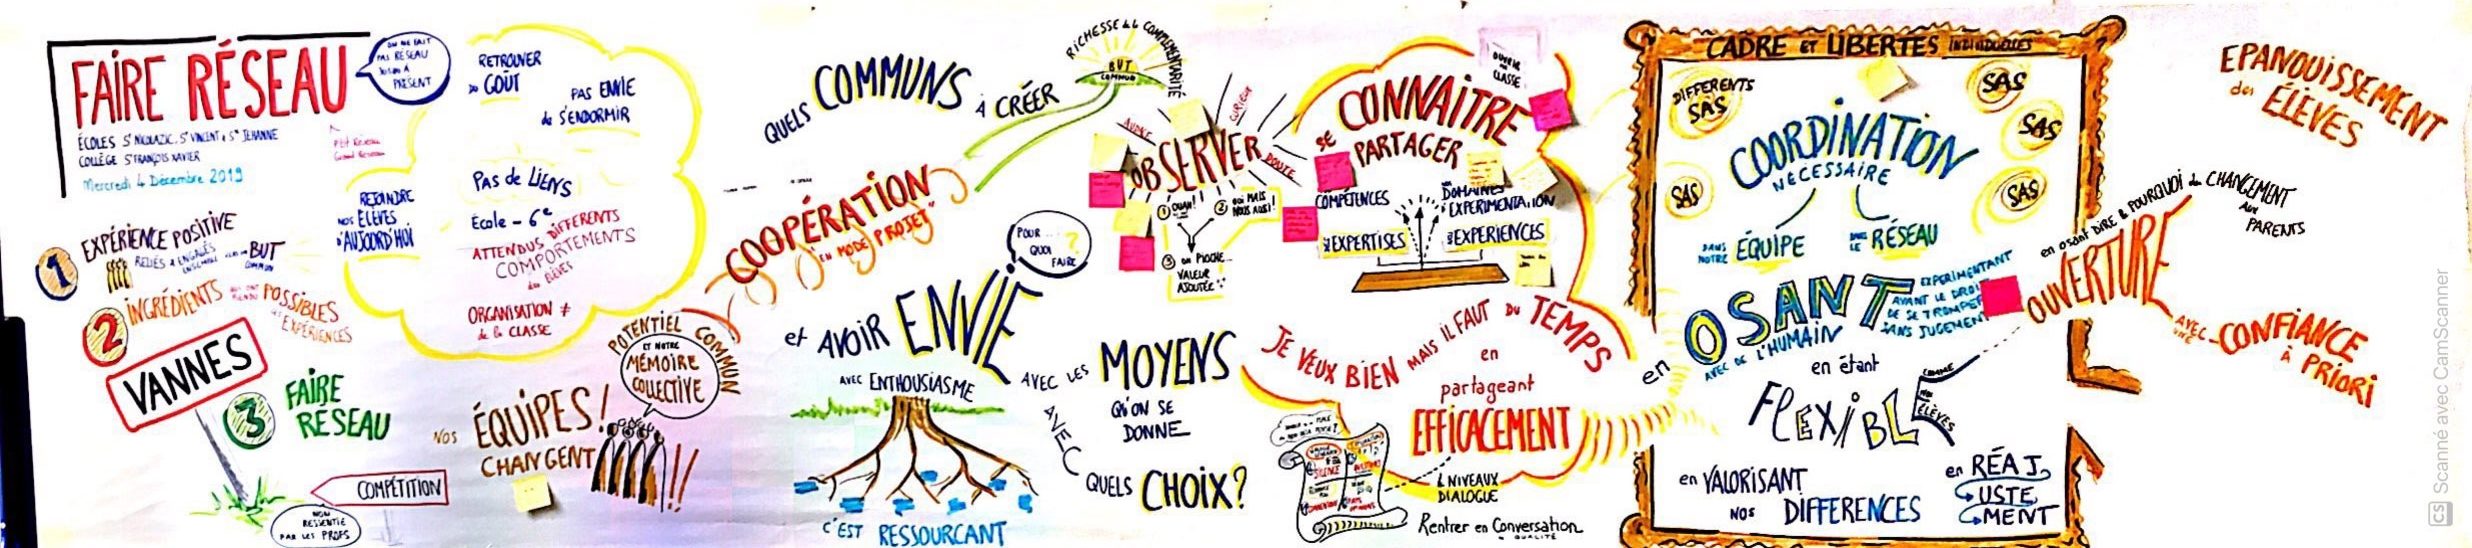 FAIRE RÉSEAU
ON NE FAIT
PAS RÉSEAU
JUSQU'À
PRÉSENT
ÉCOLES St NICOLAZIC, St VINCENT & Ste JEHANNE
COLLÈGE St FRANÇOIS XAVIER
Mercredi 4 Décembre 2019
Petit Réseau
Grand Réseau
1 EXPÉRIENCE POSITIVE
RELIÉS & ENGAGÉS
ENSEMBLE
VERS UN BUT
COMMUN
2 INGRÉDIENTS QUI ONT
RENDU POSSIBLES
ces EXPÉRIENCES
VANNES
3 FAIRE
RÉSEAU
COMPÉTITION
NON
RESSENTIE
PAR LES PROFS
RETROUVER
DU GOÛT
PAS ENVIE
de S'ENDORMIR
REJOINDRE
NOS ÉLÈVES
D'AUJOURD'HUI
PAS de LIENS
École - 6e
ATTENDUS DIFFÉRENTS
COMPORTEMENTS
des ÉLÈVES
ORGANISATION ≠
de la CLASSE
POTENTIEL COMMUN
ET NOTRE
MÉMOIRE
COLLECTIVE
NOS ÉQUIPES!
CHANGENT !!
QUELS COMMUNS À CRÉER
RICHESSE de la COMPLÉMENTARITÉ
BUT
COMMUN
COOPÉRATION
"EN MODE PROJET"
POUR...
QUOI
FAIRE ?
et AVOIR ENVIE
AVEC ENTHOUSIASME
C'EST RESSOURCANT
AVEC LES MOYENS
QU'ON SE
DONNE
AVEC
QUELS CHOIX?
AUDACE
CURIEUX
OBSERVER
DOUTE
1 OUAH!
2 OUI MAIS
NOUS AUSSI!
3 ON PIOCHE...
VALEUR
AJOUTÉE
OUVRIR
sa
CLASSE
SE CONNAITRE
PARTAGER
COMPÉTENCES
NOS EXPERTISES
NOS DOMAINES
D'EXPÉRIMENTATION
NOS EXPÉRIENCES
JE VEUX BIEN MAIS IL FAUT DU TEMPS
en
partageant
EFFICACEMENT
4 NIVEAUX
DIALOGUE
Rentrer en Conversation
de QUALITÉ
CADRE ET LIBERTÉS INDIVIDUELLES
DIFFERENTS
SAS
SAS
SAS
SAS
SAS
COORDINATION
NÉCESSAIRE
DANS
NOTRE ÉQUIPE
DANS
LE RÉSEAU
en OSANT
EXPÉRIMENTANT
AYANT LE DROIT
DE SE TROMPER
SANS JUGEMENT
AVEC DE L'HUMAIN
en étant
FLEXIBLE
COMME
NOS
ÉLÈVES
en VALORISANT
NOS DIFFERENCES
en RÉAJ
USTE
MENT
EPANOUISSEMENT
des ÉLÈVES
en osant DIRE le POURQUOI du CHANGEMENT
AUX
PARENTS
OUVERTURE
AVEC
UNE CONFIANCE
À PRIORI
CS Scanné avec CamScanner